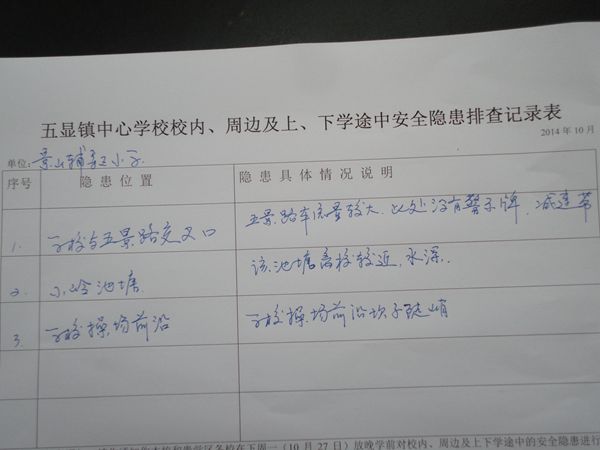 五显镇中心学校校内、周边及上、下学途中安全隐患排查记录表
2014 年 10 月
单位:景山辅导小学
序号 隐患位置 隐患具体情况说明
1. 学校与五景路交叉口 五景路车流量较大,此处没有警示牌,减速带
2. 小岭池塘 该池塘离校较近,水深.
3. 学校操场前沿 学校操场前沿坎子陡峭
各校在下周一(10 月 27 日)放晚学前对校内、周边及上下学途中的安全隐患进行